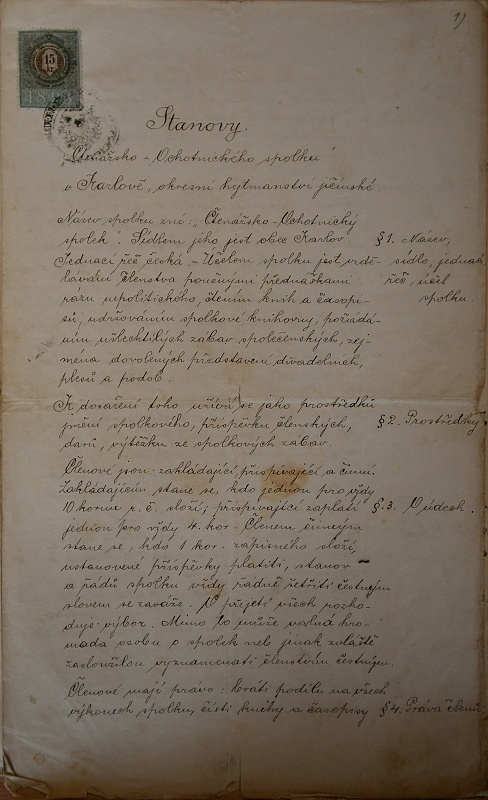 1)
15
1898
Stanovy.
Čtenářsko-Ochotnického spolku
v Karlově, okresní hejtmanství jičínské.
Název spolku zní: „Čtenářsko-Ochotnický
spolek“. Sídlem jeho jest obec Karlov
Jednací řeč česká – Účelem spolku jest vzdě-
lávání členstva poučnými přednáškami
rázu nepolitického, čtením knih a časopi-
sů, udržováním spolkové knihovny, pořádá-
ním ušlechtilých zábav společenských, zej-
ména dovolených představení divadelních,
plesů a podob.
§ 1. Název,
sídlo, jednací
řeč, účel
spolku.
K dosažení toho užívá se jako prostředků
jmění spolkového, příspěvků členských,
darů, výtěžku ze spolkových zábav.
§ 2. Prostředky.
Členové jsou: zakládající, přispívající a činní.
Zakládajícím stane se, kdo jednou pro vždy
10 korun r. č. složí; přispívající zaplatí
jednou pro vždy 4. kor. Členem činným
stane se, kdo 1 kor. zápisného složí,
ustanovené příspěvky platiti, stanov
a řádů spolku vždy řádně šetřiti čestným
slovem se zaváže. O přijetí všech rozho-
duje výbor. Mimo to může valná hro-
mada osobu o spolek neb jinak zvláště
zasloužilou vyznamenati členstvím čestným.
§ 3. O údech.
Členové mají právo: bráti podílu na všech
výkonech spolku, čísti knihy a časopisy
§ 4. Práva členů